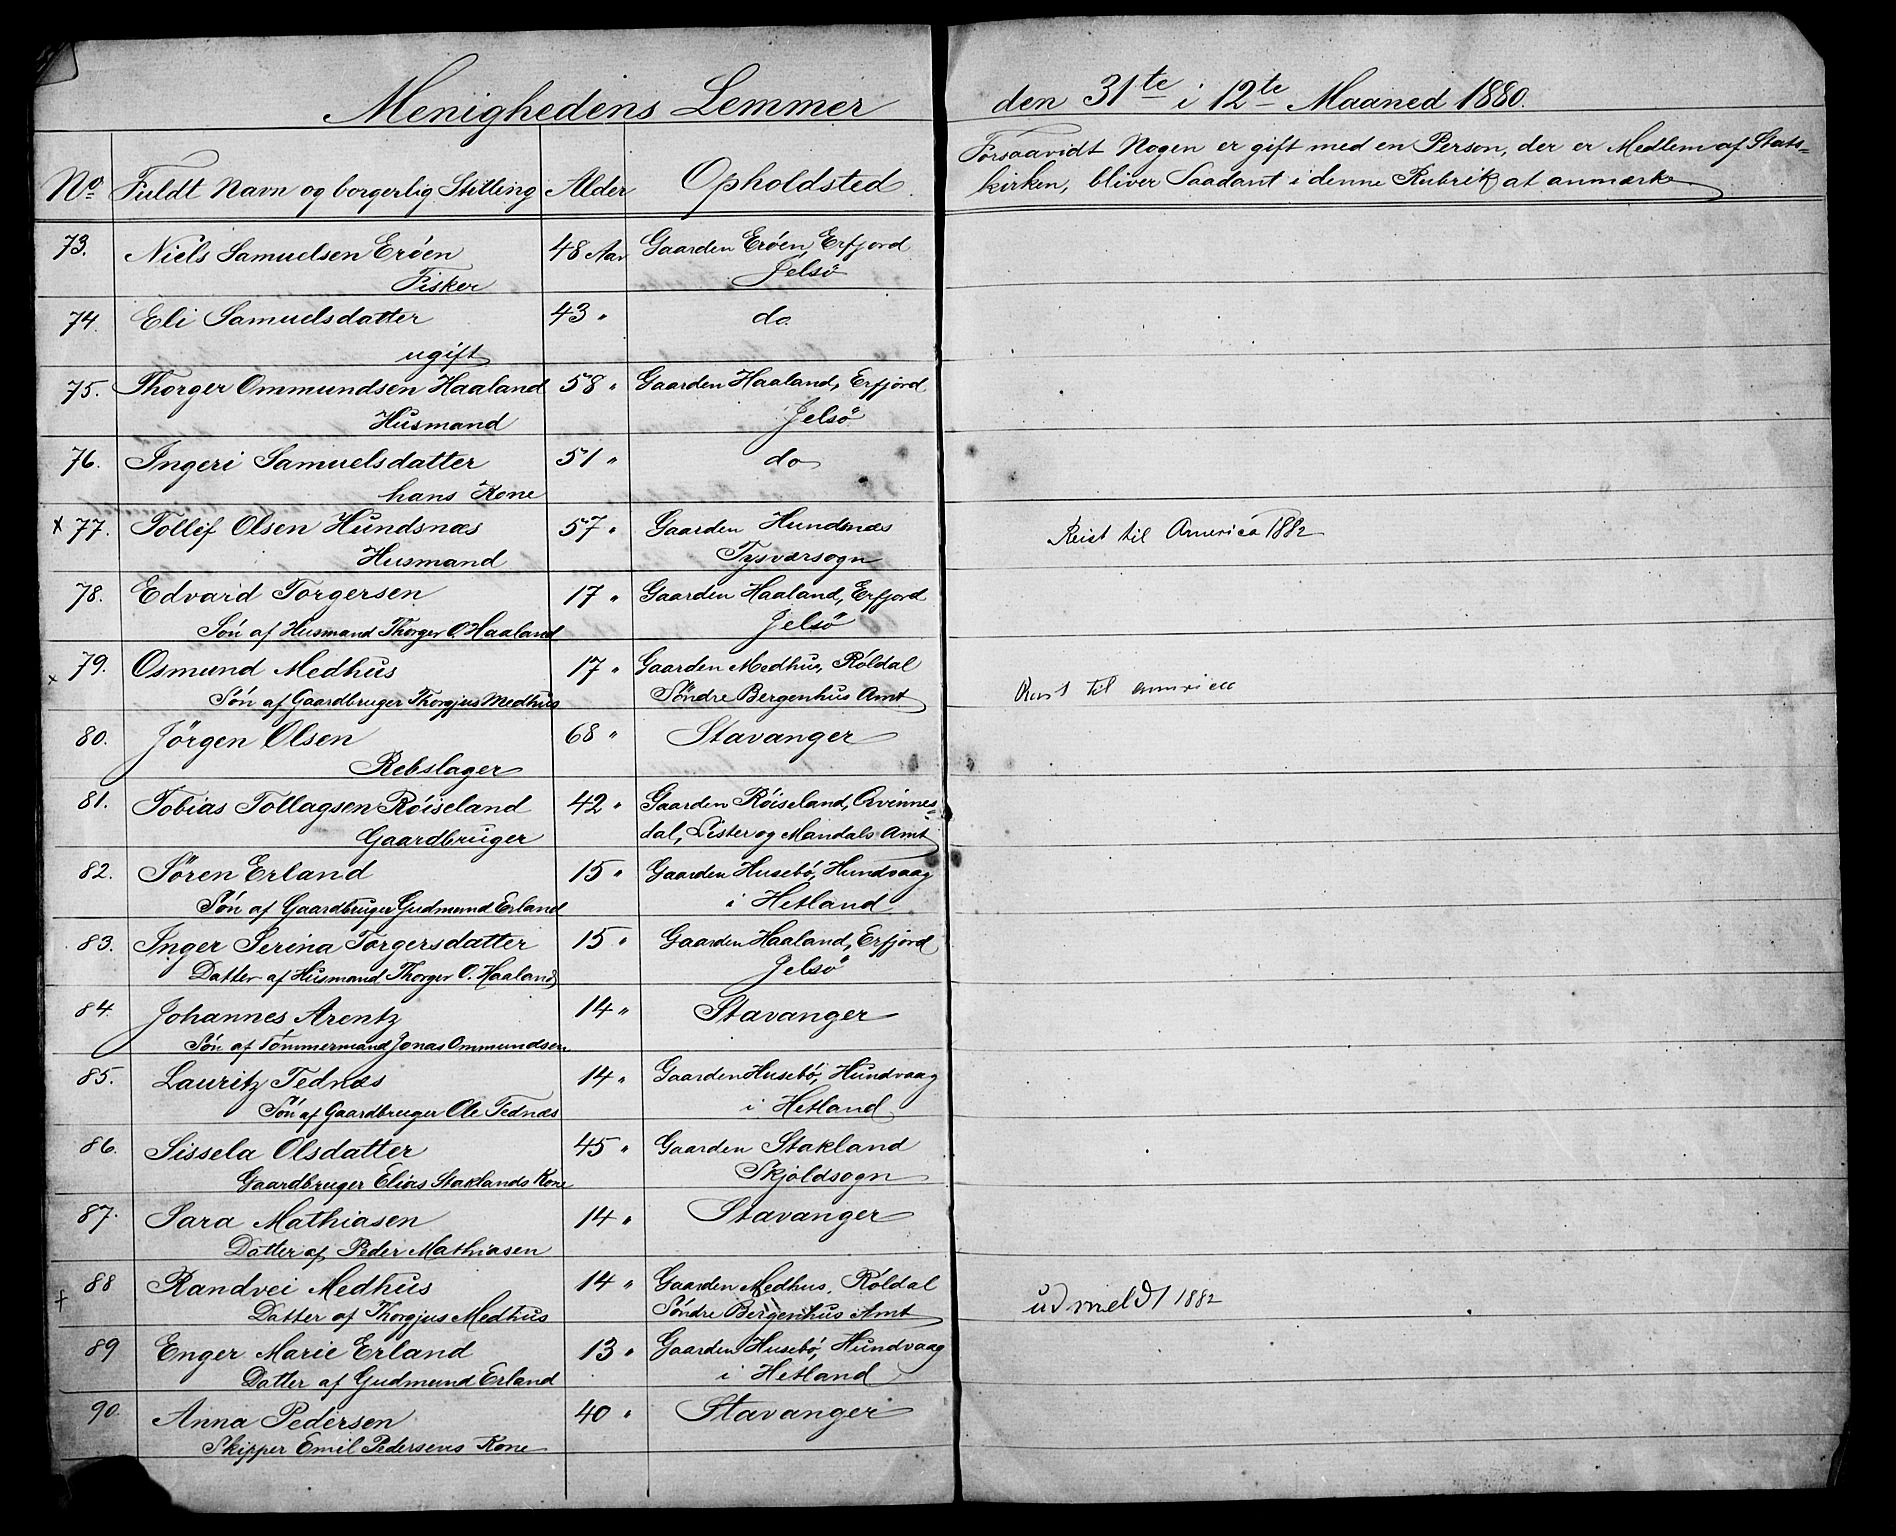 Menighedens Lemmer den 31te i 12te Maaned 1880.
No Fuldt Navn og borgerlig Stilling Alder Opholdsted Forsaavidt Nogen er gift med en Person, der er Medlem af Stats-
kirken, bliver Saadant i denne Rubrik at anmærke
73. Niels Samuelsen Eröen 48 Aar Gaarden Eröen, Erfjord
Fisker Jelsö
74. Eli Samuelsdatter 43 " do
ugift
75. Thorger Ommundsen Haaland 58 " Gaarden Haaland, Erfjord
Husmand Jelsö
76. Ingeri Samuelsdatter 51 " do
hans Kone
x 77. Tollef Olsen Hundsnæs 57 " Gaarden Hundsnæs Reist til America 1882
Husmand Tysværsogn
78. Edvard Torgersen 17 " Gaarden Haaland, Erfjord
Sön af Husmand Thorger O. Haaland Jelsö
x 79. Osmund Medhus 17 " Gaarden Medhus, Röldal Reist til America
Sön af Gaardbruger Thorgjus Medhus Söndre Bergenhus Amt
80. Jörgen Olsen 68 " Stavanger
Rebslager
81. Tobias Tollagsen Röiseland 42 " Gaarden Röiseland, Qvinnes-
Gaardbruger dal, Lister og Mandals Amt
82. Sören Erland 15 " Gaarden Husebö, Hundvaag
Sön af Gaardbruger Gudmund Erland i Hetland
83. Inger Serina Torgersdatter 15 " Gaarden Haaland, Erfjord
Datter af Husmand Thorger O. Haaland Jelsö
84. Johannes Arentz 14 " Stavanger
Sön af Tömmermand Jonas Ommundsen
85. Lauritz Tednæs 14 " Gaarden Husebö, Hundvaag
Sön af Gaardbruger Ole Tednæs i Hetland
86. Sissela Olsdatter 45 " Gaarden Stakland
Gaardbruger Elias Staklands Kone Skjoldsogn
87. Sara Mathiasen 14 " Stavanger
Datter af Peder Mathiasen
+ 88 Randvei Medhus 14 " Gaarden Medhus, Röldal udmeldt 1882
Datter af Thorgjus Medhus Söndre Bergenhus Amt
89 Enger Marie Erland 13 " Gaarden Husebö, Hundvaag
Datter af Gudmund Erland i Hetland
90. Anna Pedersen 40 " Stavanger
Skipper Emil Pedersens Kone